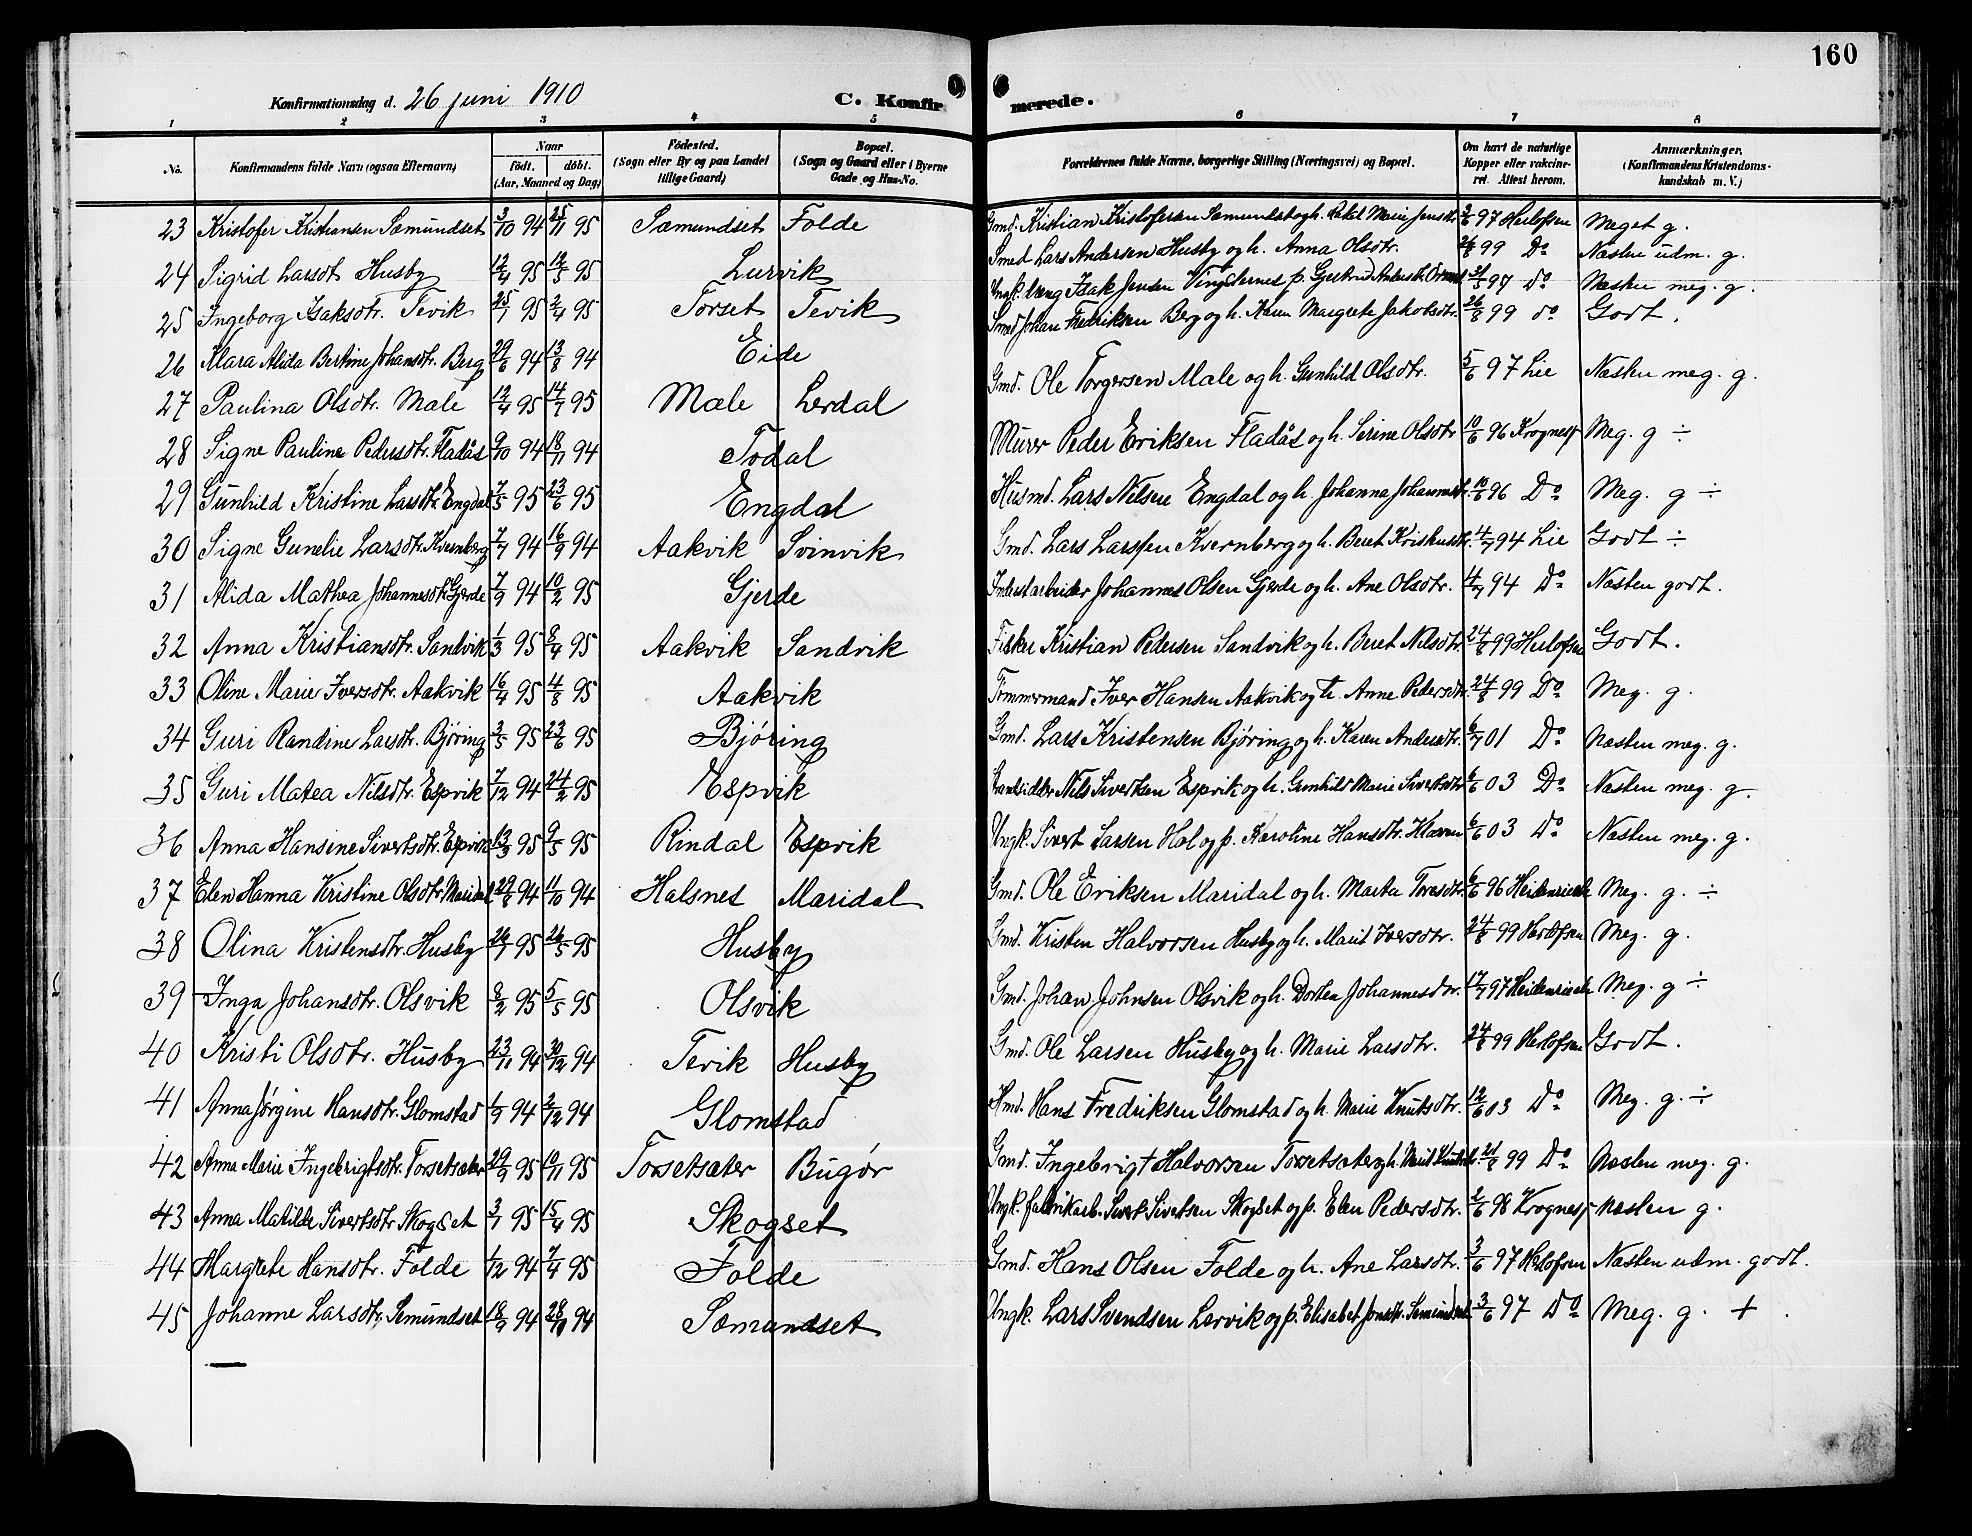 160
Konfirmationsdag d. 26 juni 1910 C. Konfirmerede.
1 2 3 4 5 6 7 8
No. Konfirmandens fulde Navn (ogsaa Efternavn) Naar Födt. döbt. (Aar, Maaned og Dag) Födested. (Sogn eller By og paa Landet tillige Gaard) Bopæl. (Sogn og Gaard eller i Byerne Gade og Hus-No. Forældrenes fulde Navne, borgerlige Stilling (Næringsvei) og Bopæl. Om havt de naturlige Kopper eller vakcineret. Attest herom. Anmærkninger. (Konfirmandens Kristendomskundskab m. V.)
23 Kristofer Kristiansen Sæmundset 3/10 94 25/11 95 Sæmundset Folde Gmd. Kristian Kristofersen Sæmundset og h. Marie Jensdtr. 97 Herlofsen Meget g.
24 Sigrid Larsdt Husby 12/4 95 12/5 95 Lurvik Smed Lars Andersen Husby og h. Anna Olsdtr. 99 Do Næsten udm. g.
25 Ingeborg Isaksdtr. Tevik 25/1 95 2/4 95 Torset Tevik Ungk. Isak Jensen p. Gjertrud 97 Do Næsten meg. g.
26 Klara Alida Bertine Johansdtr. Berg 29/6 94 13/8 94 Eide Smed Johan Fredriksen Berg og h. Karen Margrete Jakobsdtr. 26/8 99 do Godt.
27 Paulina Olsdtr. Mæle 12/4 95 14/7 95 Mæle Lerdal Gmd. Ole Torgersen Mæle og h. Gunhild Olsdtr. 5/6 97 Lie Næsten meg. g.
28 Signe Pauline Pedersdtr. Fladås 9/10 94 18/11 94 Todal Murer Peder Eriksen Fladås og h. Serine Olsdtr 10/6 96 Krognesf Meg. g ÷
29 Gunhild Kristine Larsdtr Engdal 7/5 95 23/6 95 Engdal Husmd. Lars Nilsen Engdal og h. Johanna Johannesdtr. 10/6 96 Do Meg. g ÷
30 Signe Gunelie Larsdtr. Kvernberg 7/7 94 16/9 94 Aakvik Svinvik Gmd. Lars Larssen Kvernberg og h. Beret 4/7 94 Lie Godt ÷
31 Alida Mathea Johannesdtr Gjerde 7/9 94 10/2 95 Gjerde Johannes Olsen Gjerde og h. Ane Olsdtr. 4/7 94 Do Næsten godt.
32 Anna Kristiansdtr. Sandvik 1/3 95 8/4 95 Aakvik Sandvik Fisker Kristian Pedersen Sandvik og h. Beret Nilsdtr. 24/8 99 Herlofsen Godt.
33 Oline Marie Iversdtr. Aakvik 16/4 95 4/8 95 Aakvik Tömmermand Iver Hansen Aakvik og h. Anne Pedersdtr. 24/8 99 Do Meg. g.
34 Guri Randine Larsdtr. Bjøring 3/5 95 23/6 95 Bjøring Gmd. Lars Kristensen Bjøring og h. Karen Andersdtr. 6/7 01 Do Næsten meg. g.
35 Guri Matea Nilsdtr. Espvik 7/12 94 24/2 95 Espvik Strandsidder Nils Sivertsen Espvik og h. Gunhild Marie Sivertsdtr 6/6 03 Do Næsten meg. g.
36 Anna Hansine Sivertsdtr. Espvik 13/3 95 9/5 95 Rindal Espvik Ungk. Sivert Larsen Hol og p. Karoline Hansdtr. 6/6 03 Do Næsten meg. g.
37 Elen Hanna Kristine Olsdtr. Maridal 29/8 94 11/10 94 Halsnes Maridal Gmd. Ole Eriksen Maridal og h. Marta Toresdtr. 6/6 96 Meg. g. ÷
38 Olina Kristensdtr. Husby 26/4 95 26/5 95 Husby Gmd. Kristen Halvorsen Husby og h. Marit Iversdtr. 24/8 99 Herlofsen Meg. g.
39 Inga Johansdtr. Olsvik 8/2 95 5/5 95 Olsvik Gmd. Johan Johnsen Olsvik og h. Dorthea Johannesdtr. 17/7 97 Meg. g ÷
40 Kristi Olsdtr. Husby 23/11 94 30/12 94 Tevik Husby Gmd. Ole Larsen Husby og h. Marie Larsdtr. 24/8 99 Herlofsen Godt.
41 Anna Jørgine Hansdtr. Glomstad 1/9 94 2/12 94 Glomstad Hmd. Hans Fredriksen Glomstad og h. Marie Knutsdtr. 12/6 03 Do Meg. g. ÷
42 Anna Marie Ingebrigtsdtr. Torsetsæter 29/9 95 10/11 95 Torsetsæter Bugør Gmd. Ingebrigt Halvorsen Torsetsæter og h. Marit 21/8 99 Do Næsten meg. g.
43 Anna Matilde Sivertsdtr Skogset 3/1 95 15/4 95 Skogset Ungk. fabrikarb. Sivert Sivertsen Skogset og p. Elen Pedersdtr. 2/6 98 Krognesf Næsten g.
44 Margrete Hansdtr. Folde 1/12 94 7/4 95 Folde Gmd. Hans Olsen Folde og h. Ane Larsdtr. 3/6 97 Herlofsen Næsten udm. godt.
45 Johanne Larsdtr. Semundset 18/9 94 28/10 94 Sæmundset Ungk. Lars Svendsen Lervik og p. Elisabet Jonsdtr. Semundset 3/6 97 Do Meg. g. +